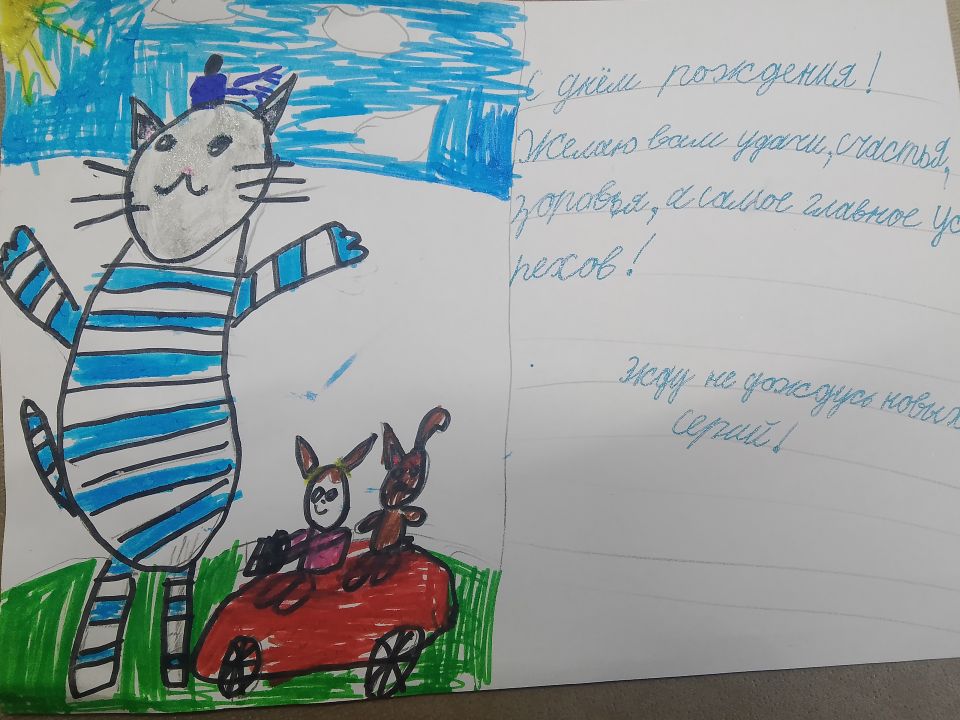 С днём рождения!
Желаю вам удачи, счастья,
здоровья, а самое главное ус
пехов!
Жду не дождусь новых
серий!